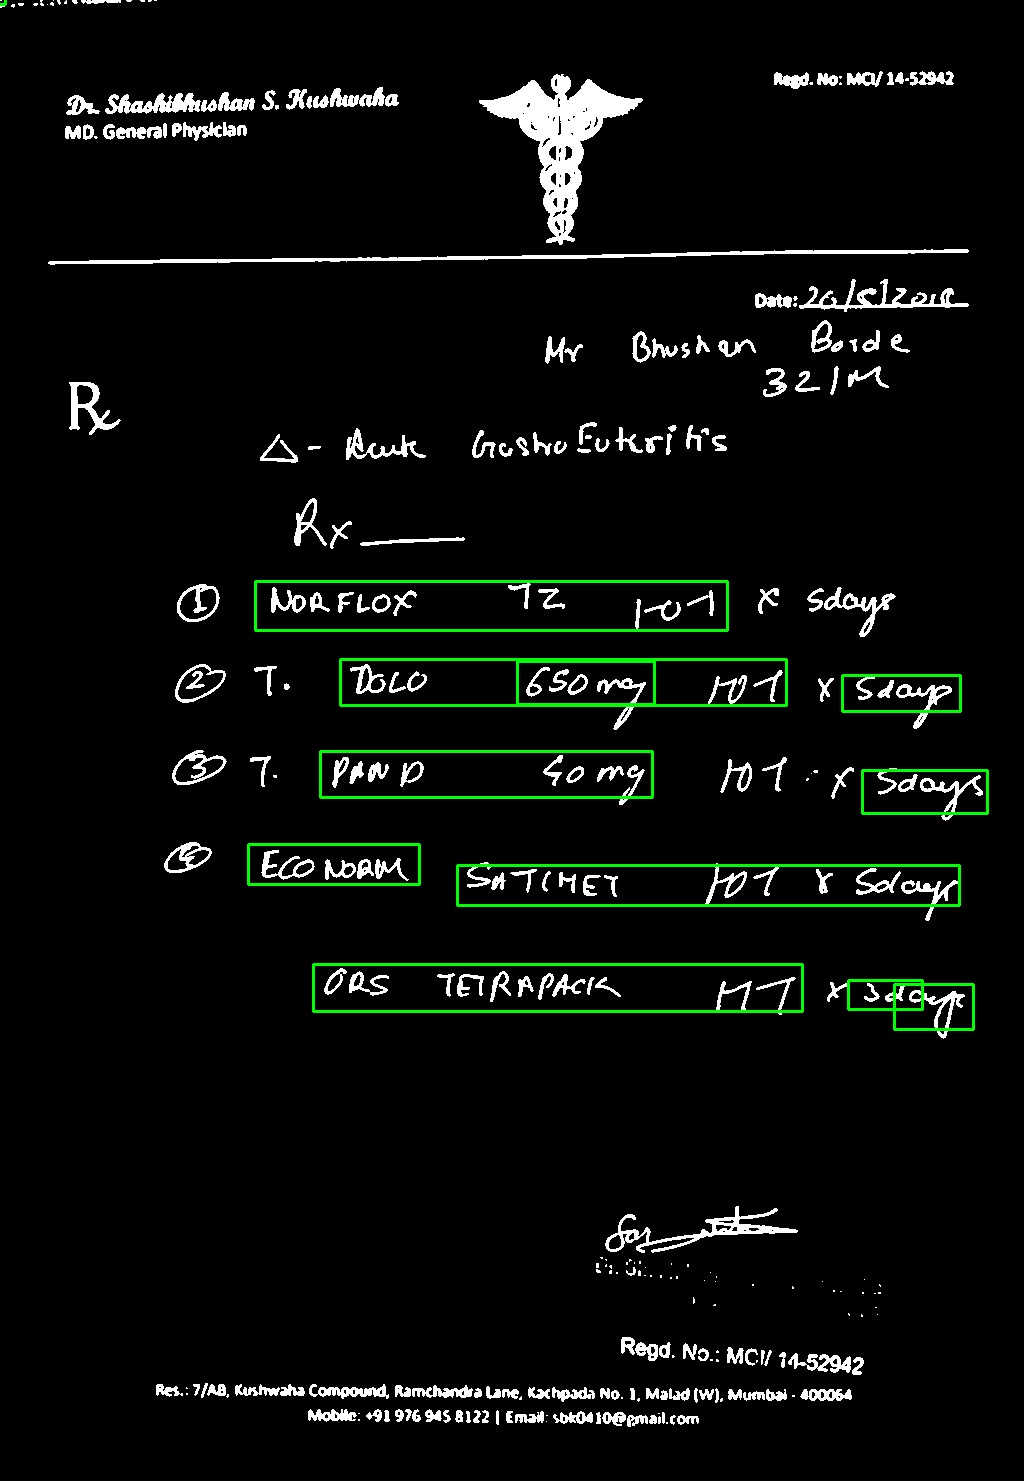 Dr. Shashibhushan S. Kushwaha
Regd. No: MCI/ 14-52942
MD. General Physician
Date:
Mr Bhushan Borde
32/M
Rx
△ - Acute GastroEnteritis
Rx
① NORFLOX TZ 1-0-1 x 5days
② T. DOLO 650mg 1-0-1 x 5days
③ T. PAN D 40mg 1-0-1 x 5days
④ ECONORM SATCHET 1-0-1 x 5days
ORS TETRAPACK x 3days
Regd. No.: MCI/ 14-52942
Res.: 7/AB, Kushwaha Compound, Ramchandra Lane, Kachpada No. 1, Malad (W), Mumbai - 400064
Mobile: +91 976 945 8122 | Email: sbk0410@gmail.com